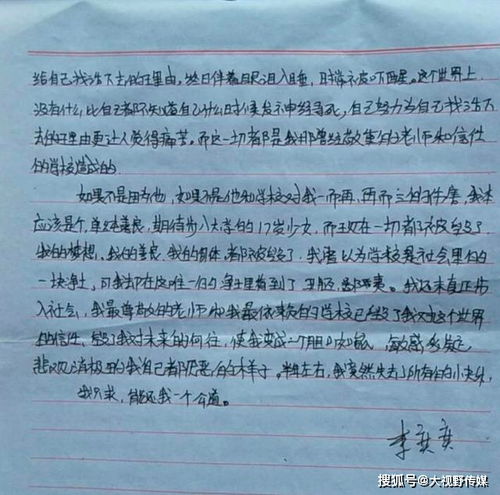 给自己找活下去的理由,终日伴着眼泪入睡,时常被吓醒。这个世界上
没有什么比自己都不知道自己什么时候发神经寻死,自己努力为自己找活下
去的理由更让人觉得痛苦。而这一切都是我那曾经敬重的老师和信任
的学校造成的。
如果不是因为他,如果不是他和学校对我一而再,再而三的伤害,我本
应该是个单纯善良,期待步入大学的17岁少女,而现在一切都被毁了
我的梦想,我的善良,我的身体,都被毁了,我原以为学校是社会里的
一块净土,可我却在这唯一的净土里看到了
入社会,我最尊敬的老师和我最信赖的学校已经毁了我对这个世界
的信任,毁了我对未来的向往,使我变成一个胆小如鼠,敏感多疑
悲观消极的我自己都厌恶的样子。半年左右,我竟然失去了所有的小快乐
我只求,能还我一个公道。
李奕奕
搜狐号@大视野传媒